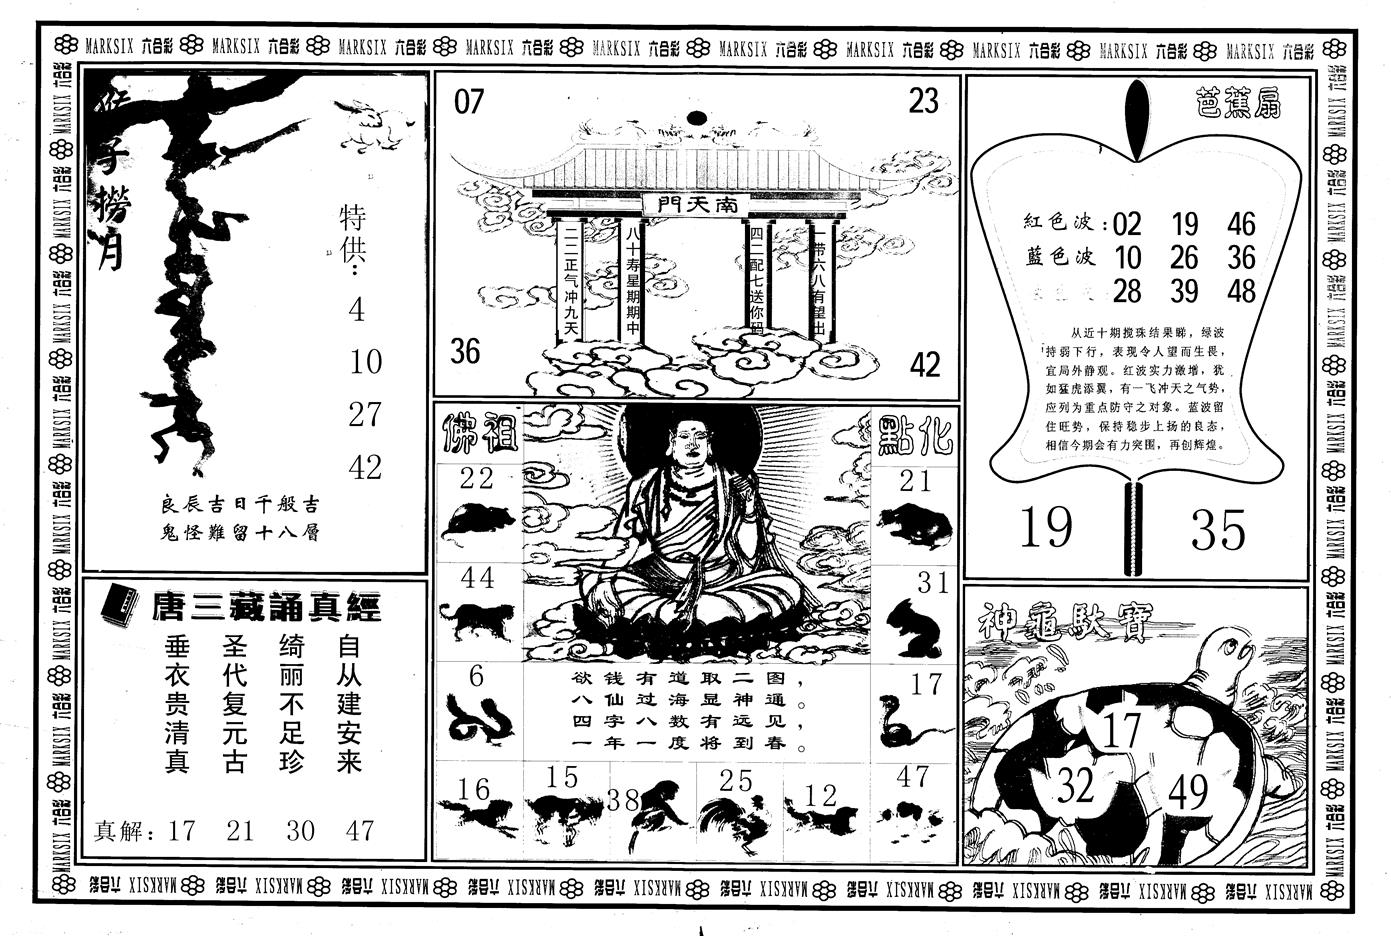 MARKSIX 六合彩 MARKSIX 六合彩 MARKSIX 六合彩 MARKSIX 六合彩 MARKSIX 六合彩 MARKSIX 六合彩 MARKSIX 六合彩 MARKSIX 六合彩 MARKSIX 六合彩 MARKSIX 六合彩
猴子撈月
特供：
4
10
27
42
良辰吉日千般吉
鬼怪難留十八層
07
23
南天門
二二正气冲九天
八十寿星期期中
四二配七送你码
一带六八有望出
36
42
芭蕉扇
紅色波：02 19 46
藍色波 10 26 36
28 39 48
从近十期搅珠结果睇，绿波
持弱下行，表现令人望而生畏，
宜局外静观。红波实力激增，犹
如猛虎添翼，有一飞冲天之气势，
应列为重点防守之对象。蓝波留
住旺势，保持稳步上扬的良态，
相信今期会有力突围，再创辉煌。
19
35
唐三藏誦真經
自从建安来
绮丽不足珍
圣代复元古
垂衣贵清真
真解：17 21 30 47
佛祖
點化
22
21
44
31
6
17
欲钱有道取二图，
八仙过海显神通。
四字八数有远见，
一年一度将到春。
16
15
38
25
12
47
神龜馱寶
17
32
49
MARKSIX 六合彩 MARKSIX 六合彩 MARKSIX 六合彩 MARKSIX 六合彩 MARKSIX 六合彩 MARKSIX 六合彩 MARKSIX 六合彩 MARKSIX 六合彩 MARKSIX 六合彩 MARKSIX 六合彩